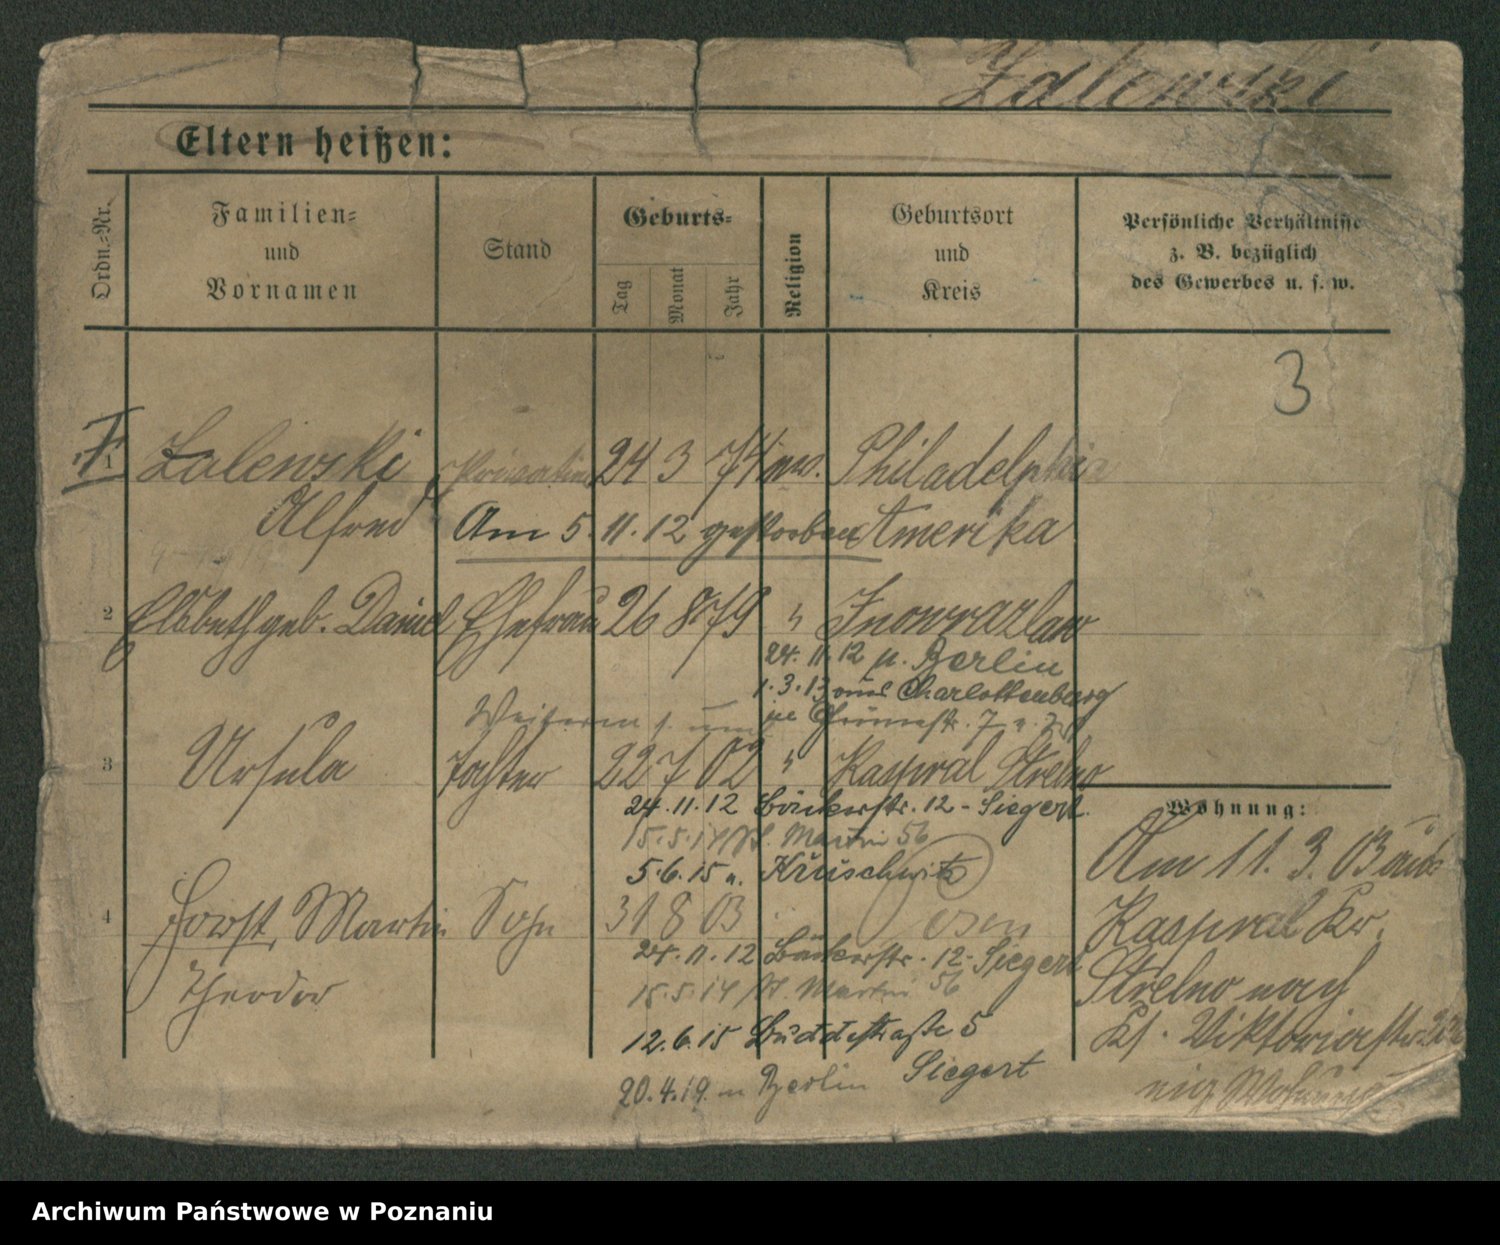 Zalewski
Eltern heißen:
Ordn.-Nr.
Familien-
und
Vornamen
Stand
Geburts-
Tag
Monat
Jahr
Religion
Geburtsort
und
Kreis
Persönliche Verhältnisse
z. B. bezüglich
des Gewerbes u. s. w.
3
1 Zalewski 24 3 74 Philadelphia
Alfred Am 5.11.12 gestorben Amerika
2 Elsbeth geb. Daniel Ehefrau 26 8 79 " Inowrazlaw
24.11.12 n. Berlin
1.3.13 aus Charlottenburg
3 Ursula Tochter 22 7 02 " Kaspral Strelno
24.11.12 Bäckerstr. 12 - Siegert.
15.5.14 St. Martin 56
5.6.15 n. Kruschwitz
4 Horst, Martin Sohn 31 8 03 Posen
Theodor
24.11.12 Bäckerstr. 12 - Siegert
15.5.14 St. Martin 56
12.6.15 Buddestraße 5
Siegert
20.4.19 n Berlin
Wohnung:
Am 11.3.03 aus
Kaspral Kr.
Strelno nach
Viktoriastr.
Archiwum Państwowe w Poznaniu